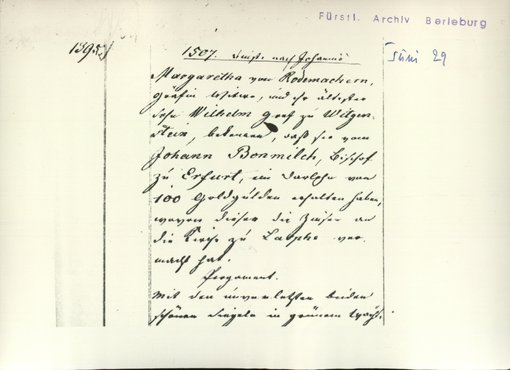 Fürstl. Archiv Berleburg
1395
1507. Dinst. nach Johannis
Juni 29
Margaretha von Rodemachern,
Gräfin Witwe, und ihr ältester
Sohn Wilhelm Graf zu Witgen
stein, bekennen, daß sie vom
Johann Bonmilch, Bischof
zu Erfurt, ein Darlehn von
100 Goldgulden erhalten haben,
wovon dieser die Zinsen an
die Kirche zu Laasphe ver
macht hat.
Pergament.
Mit den unverletzten beiden
schönen Siegeln in grünem Wachs.